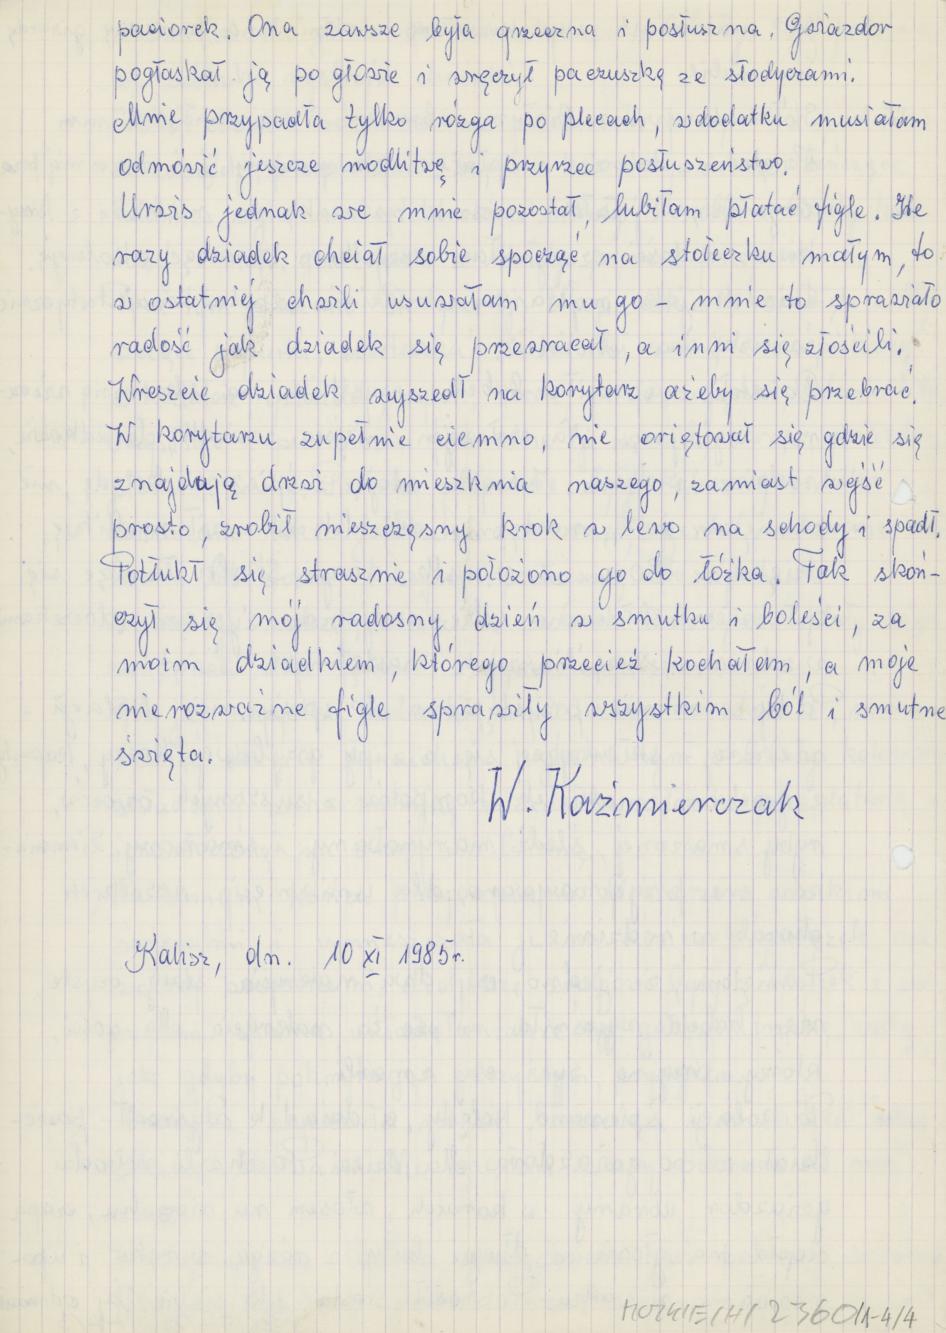 paciorek. Ona zawsze była grzeczna i posłuszna. Gwiazdor
pogłaskał ją po głowie i wręczył paczuszkę ze słodyczami.
Mnie przypadła tylko rózga po plecach, wdodatku musiałam
odmówić jeszcze modlitwę i przyrzec posłuszeństwo.
Urwis jednak we mnie pozostał, lubiłam płatać figle. Ile
razy dziadek chciał sobie spocząć na stołeczku małym, to
w ostatniej chwili usuwałam mu go - mnie to sprawiało
radość jak dziadek się przewracał, a inni się złościli.
Wreszcie dziadek wyszedł na korytarz ażeby się przebrać.
W korytarzu zupełnie ciemno, nie oriętował się gdzie się
znajdują drzwi do mieszknia naszego, zamiast wejść
prosto, zrobił nieszczęsny krok w lewo na schody i spadł.
Potłukł się strasznie i położono go do łóżka. Tak skoń-
czył się mój radosny dzień w smutku i boleści, za
moim dziadkiem, którego przecież kochałam, a moje
nierozważne figle sprawiły wszystkim ból i smutne
święta.
W. Kaźmierczak
Kalisz, dn. 10 XI 1985r.
2360/1-4/4